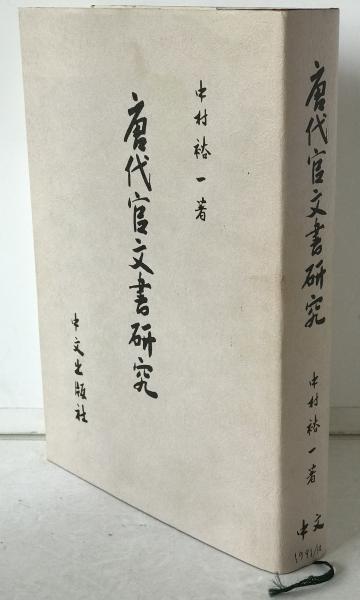 中村裕一著
唐代官文書研究
中文出版社
唐代官文書研究
中村裕一著
中文
1991/12